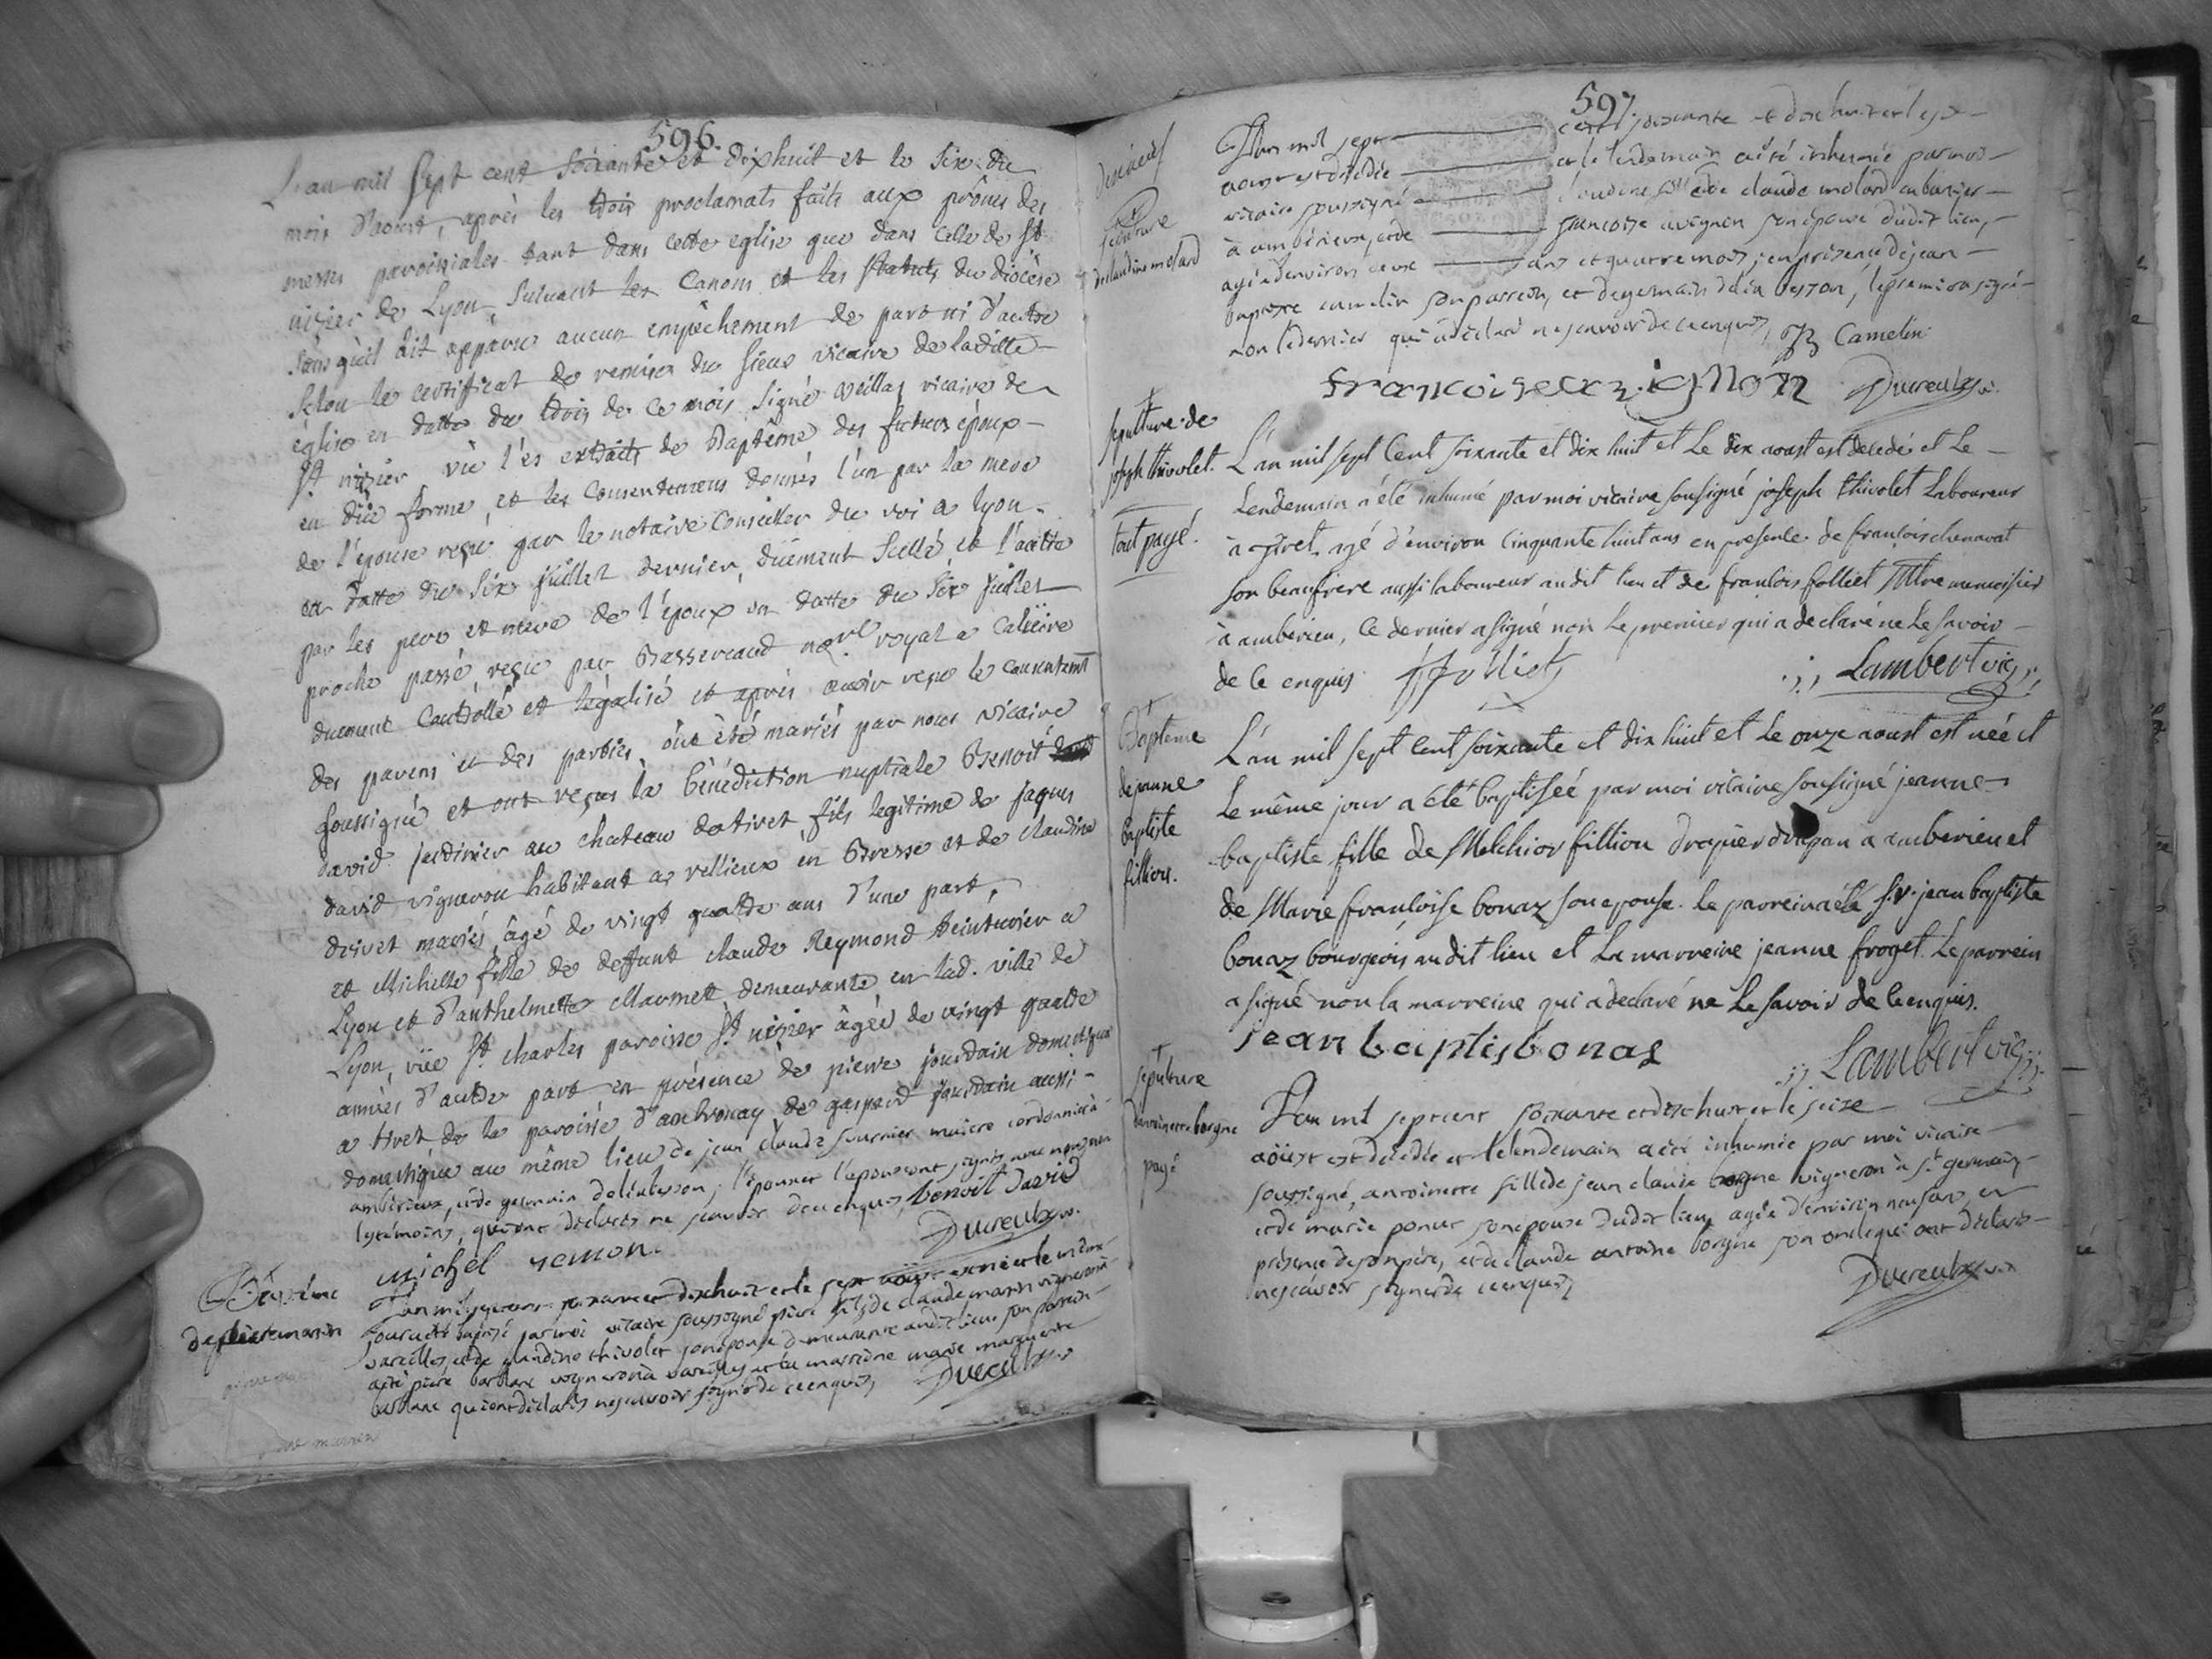 596.
L'an mil sept cent soixante et dixhuit et le six du
mois d'aoust, après les trois proclamats faits aux prônes des
messes paroissiales tant dans cette eglise que dans celle de St
nizier de Lyon, suivant les Canons et les statuts du diocèse
sans qu'il ait apparu aucun empêchement de part ni d'autre
selon le certificat de remise du sieur vicaire de laditte
église en datte du trois de ce mois signé veillas vicaire de
St nizier vû l'es extraits de Baptême des futurs époux
en düe forme, et les Consentemens donnés l'un par la mere
de l'epouse reçu par le notaire Conseiller du roi a Lyon
en datte du six juillet dernier, düement scellé, et l'autre
par les pere et mere de l'époux en datte du six juillet
proche passé, reçu par Brassereaud nore royal a Caluire
duement Contrôllé et légalisé et après avoir reçu le consentemt
des parens et des parties, ont été mariés par nous vicaire
soussigné et ont reçus la bénédiction nuptiale Benoit
david jardinier au chateau de tiret, fils legitime de jaques
david vigneron habitant a rellieux en Bresse et de claudine
drivet mariés, âgé de vingt quattre ans d'une part,
et Michelle fille de deffunt claude Reymond teinturier a
Lyon et d'anthelmette Marmet, demeurante en lad. ville de
Lyon, rüe St charles paroisse St nizier âgée de vingt quatre
années d'autre part en présence de pierre jourdain domestique
a tiret de la paroisse d'ambronay de gaspard jourdain aussi
domestique au même lieu de jean claude fournier maitre cordonnier à
ambérieux, et de germain delinbesson; l'époux et l'epouse ont signés avec nous non
les témoins, qui ont déclarés ne scavoir de ce enquis, benoit David
michel remon. Ducreulx v.
Batême
de pierre marin
L'an mil sept cent soixante et dixhuit et le sept aôust est né et le même
jour a été batisé par moi vicaire soussigné pierre fils de claude marin vigneron à
vareilles, et de claudine thivolet son épouse demeurante audit lieu son parrein
a été pierre barblanc vigneron à vareilles et la marreine marie marguerite
barblanc qui ont déclarés ne scavoir signer de ce enquis, Ducreulx v.
597
Sépulture
de claudine melard
L'an mil sept cent soixante et dix huit et le six
aoust est décédée et le lendemain a été inhumée par moi
vicaire soussigné claudine fille de claude melard cabaretier
à ambérieux, et de francoise avignon son épouse dudit lieu,
agée d'environ deux ans et quatre mois, en présence de jean
baptiste camelin son parrein, et de germain delin besson, le premier a signé
non le dernier qui a déclaré ne scavoir de ce enquis, JB Camelin
francoise avignon Ducreulx v.
sepulture de
joseph thivolet.
tout payé.
L'an mil sept Cent soixante et dix huit et Le dix aoust est decedé et Le
Lendemain a été inhumé par moi vicaire sousigné joseph thivolet Laboureur
à tiret, agé d'environ Cinquante huit ans en presence de françois chenavat
son beaufrere aussi laboureur audit lieu et de françois folliet Mtre menuisier
à amberieu, Ce dernier a signé non Le premier qui a declaré ne Le savoir
de Ce enquis ff folliet Lambert vic.
Bapteme
de jeanne
baptiste
fillion.
L'an mil sept Cent soixante et dix huit et Le onze aoust est née et
Le même jour a été baptisée par moi vicaire sousigné jeanne
baptiste fille de Melchior fillion drapier drapan a amberieu et
de Marie françoise bonaz son epouse. Le parrein a été Sr. jean baptiste
bonaz bourgeois audit lieu et La marreine jeanne froget. Le parrein
a signé non la marreine qui a declaré ne Le savoir de Ce enquis.
jean baptis bonas Lambert vic.
sepulture
d'antoinette borgne
payé
L'an mil sept cent soixante et dix huit et le seize
aôust est décédée et le lendemain a été inhumée par moi vicaire
soussigné, antoinette fille de jean claude borgne vigneron à st germain,
et de marie poncet son épouse dudit lieu, agée d'environ neuf ans, en
présence de son père, et de claude antoine borgne son oncle qui ont déclarés
ne scavoir signer de ce enquis, Ducreulx v.